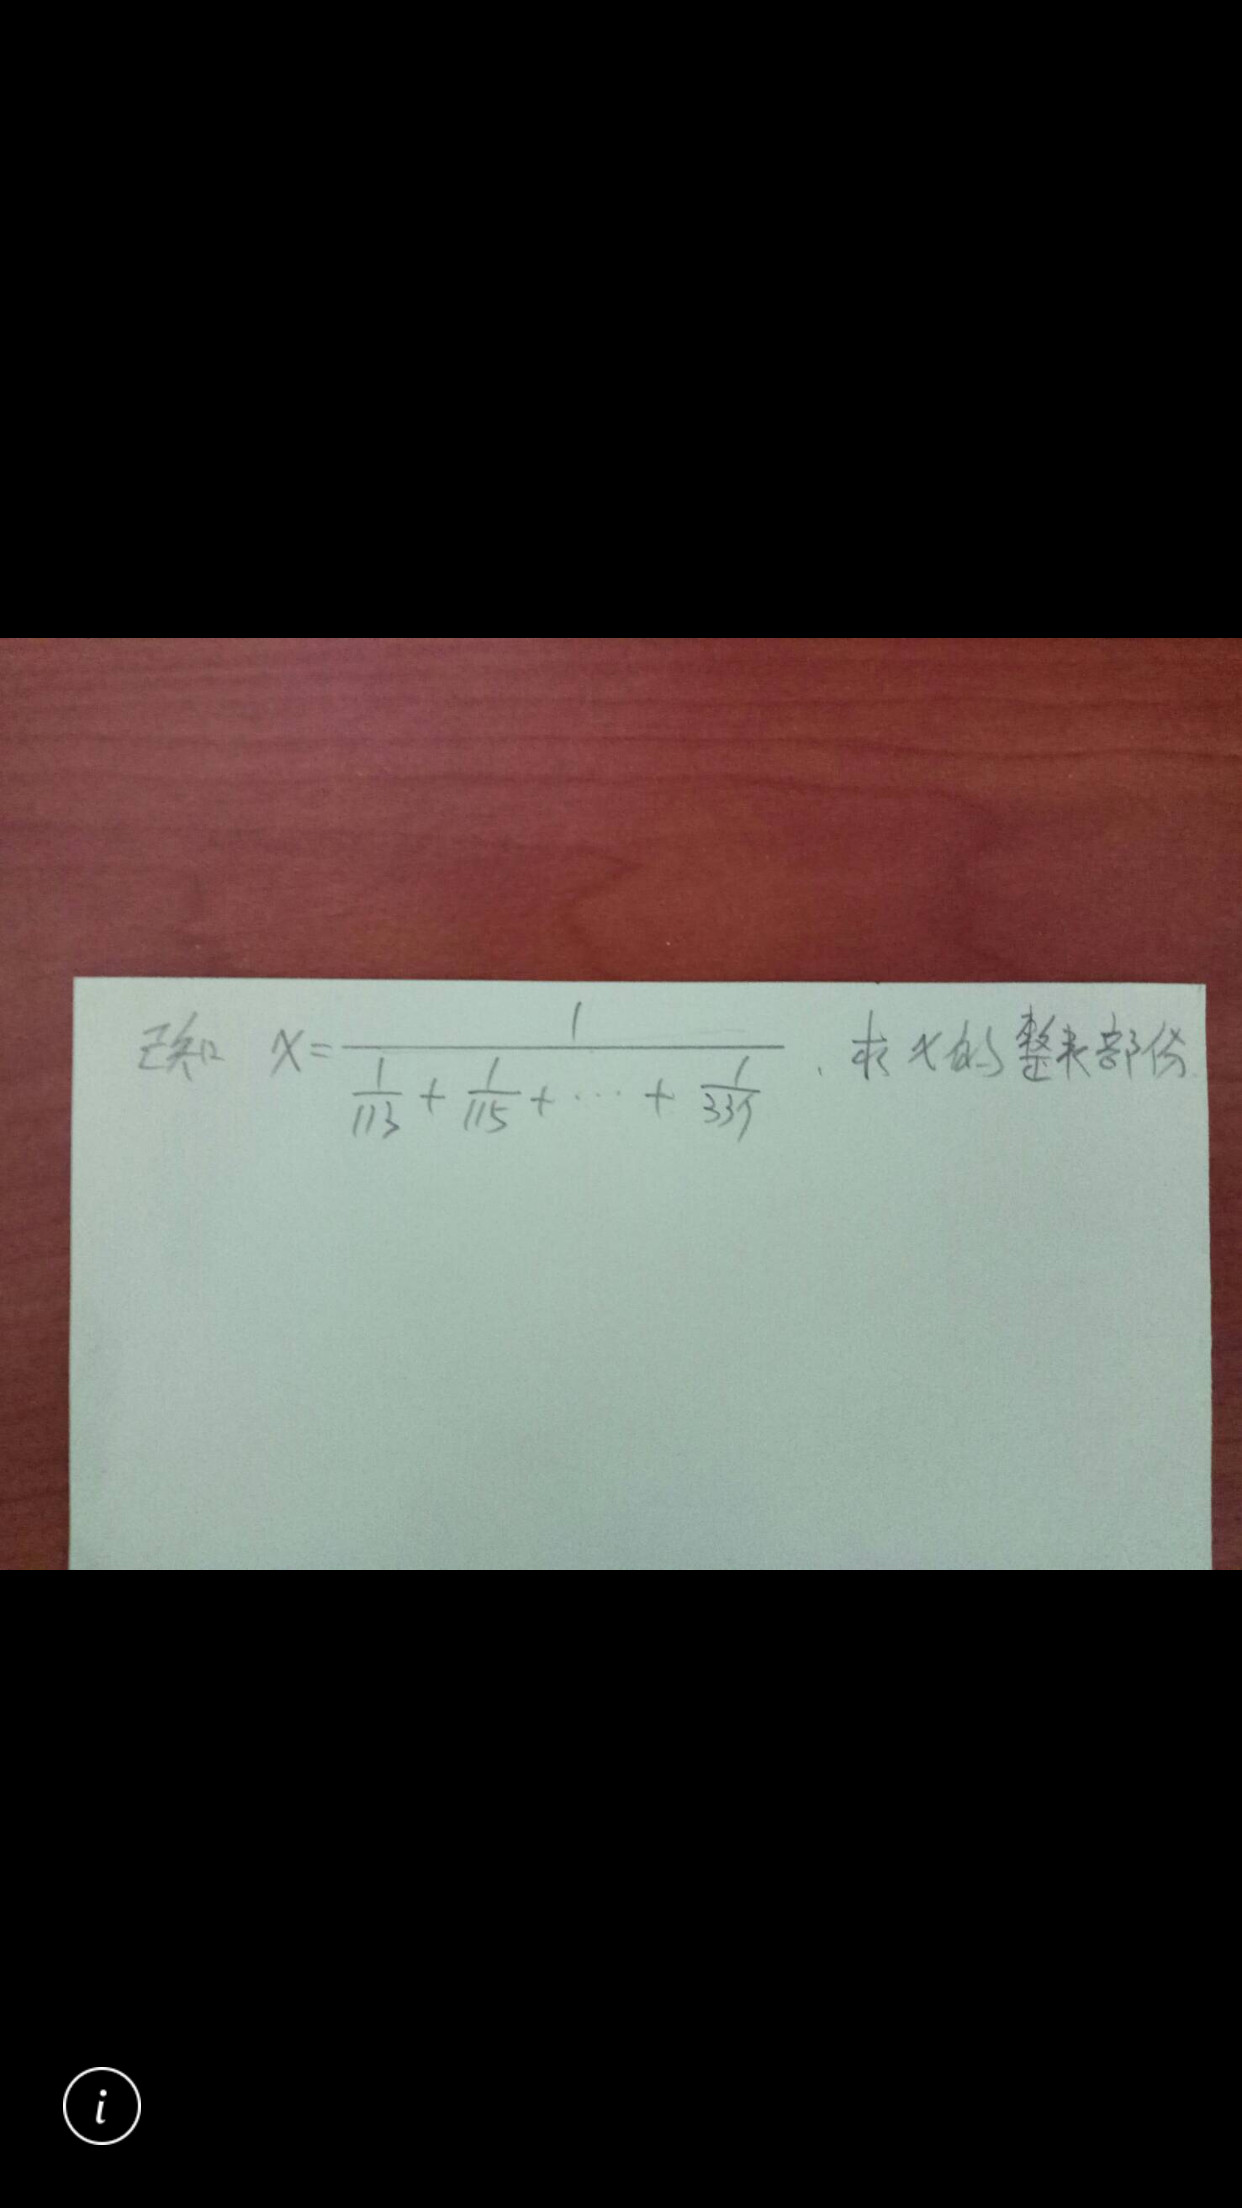 已知 x = 1/(1/113 + 1/115 + ··· + 1/339)、求x的整数部份
i